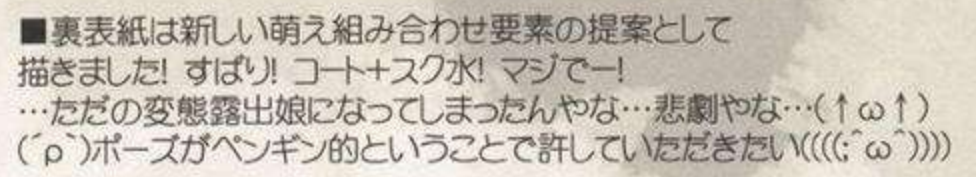 ■裏表紙は新しい萌え組み合わせ要素の提案として
描きました! すばり! コート+スク水! マジでー!
…ただの変態露出娘になってしまったんやな…悲劇やな…(↑ω↑)
(´ρ`)ポーズがペンギン的ということで許していただきたい((((;^ω^))))